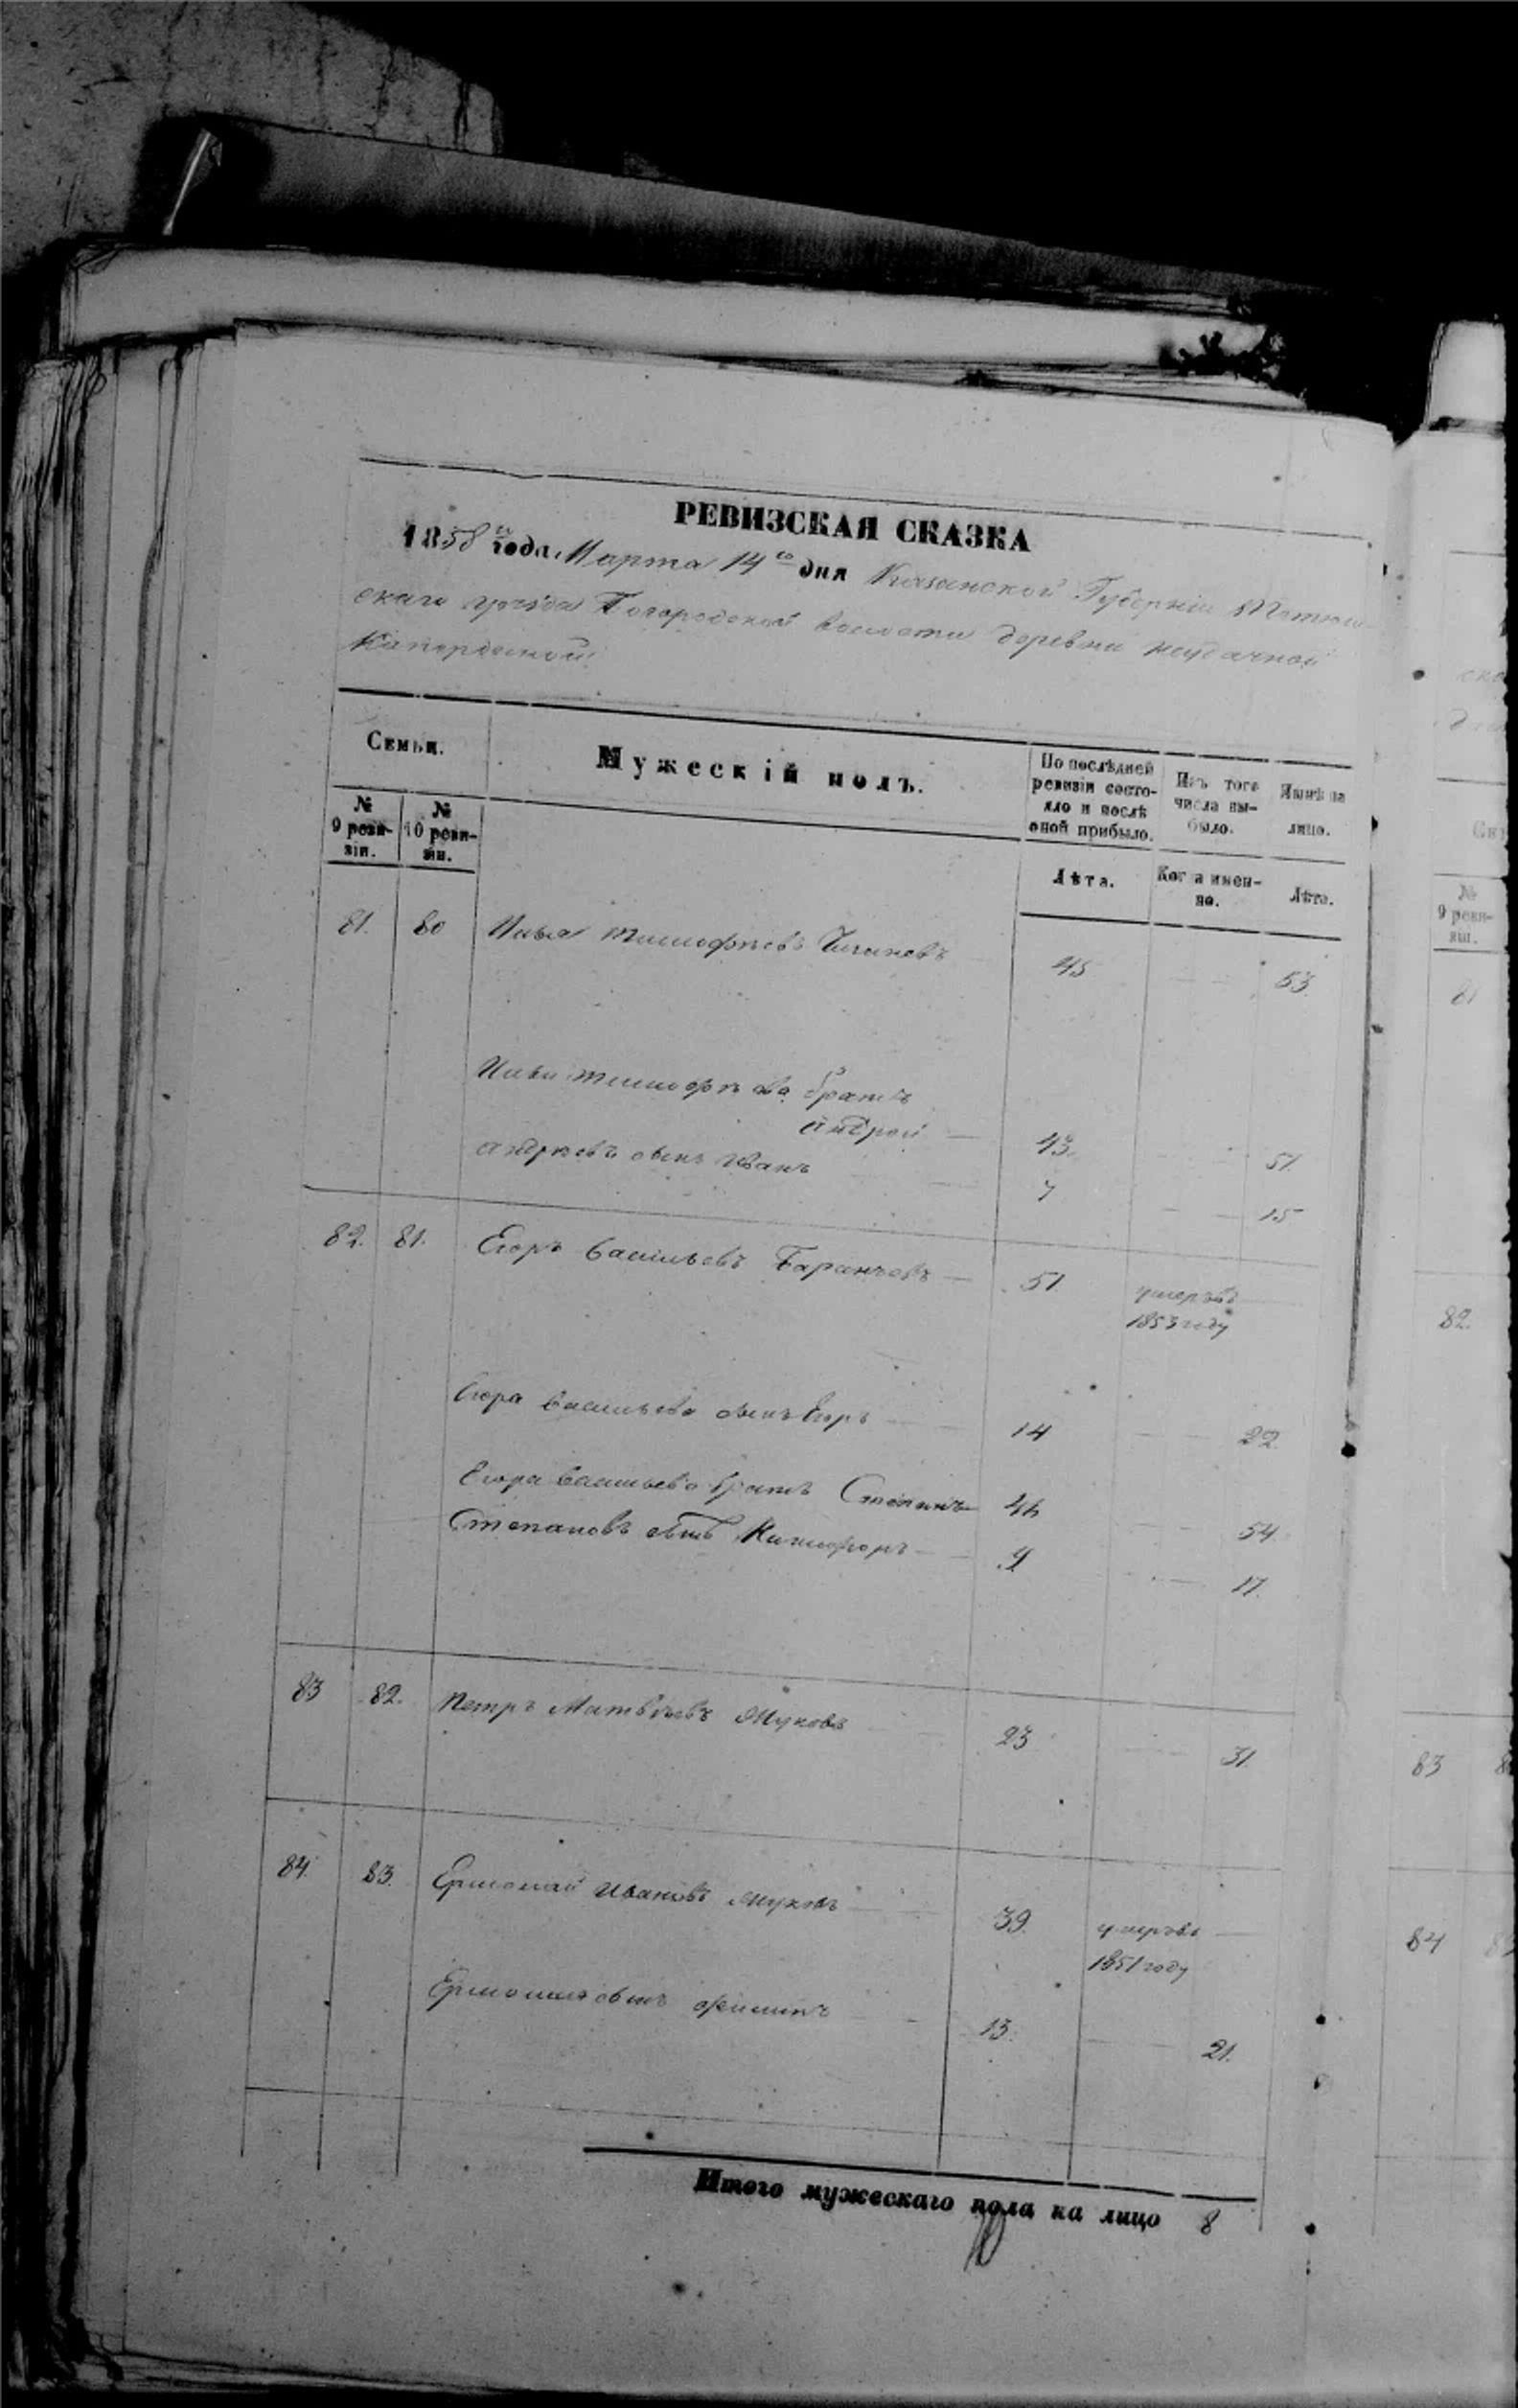 РЕВИЗСКАЯ СКАЗКА
1858го года Марта 14го дня Казанской Губерніи Тетюш-
скаго уѣзда Богородской волости деревни неудачной
Семьи.
Мужескій полъ.
По послѣдней ревизіи состо-
яло и послѣ
оной прибыло.
Изъ того
числа вы-
было.
Нынѣ на
лицо.
№
9 реви-
зіи.
№
10 реви-
зіи.
Лѣта.
Когда имен-
но.
Лѣта.
81. 80 Илья Тимофѣевъ 45 53
Ильи Тимофѣева братъ
Андрей 43. 51.
Андреевъ сынъ Иванъ 7 15
82. 81. Егоръ Васильевъ Баранчовъ 51. умеръ въ
1853 году
Егора Васильева сынъ Егоръ 14 22.
Егора Васильева братъ Степанъ 46 54.
Степановъ сынъ Никифоръ 9 17.
83 82. Петръ Матвѣевъ Жуковъ 23 31.
84. 83. Ермолай Ивановъ Жуковъ 39. умеръ въ
1851 году
Ермолая сынъ Филипъ 13. 21.
Итого мужескаго пола на лицо 8
№
9 реви-
зіи.
81
82.
83
84